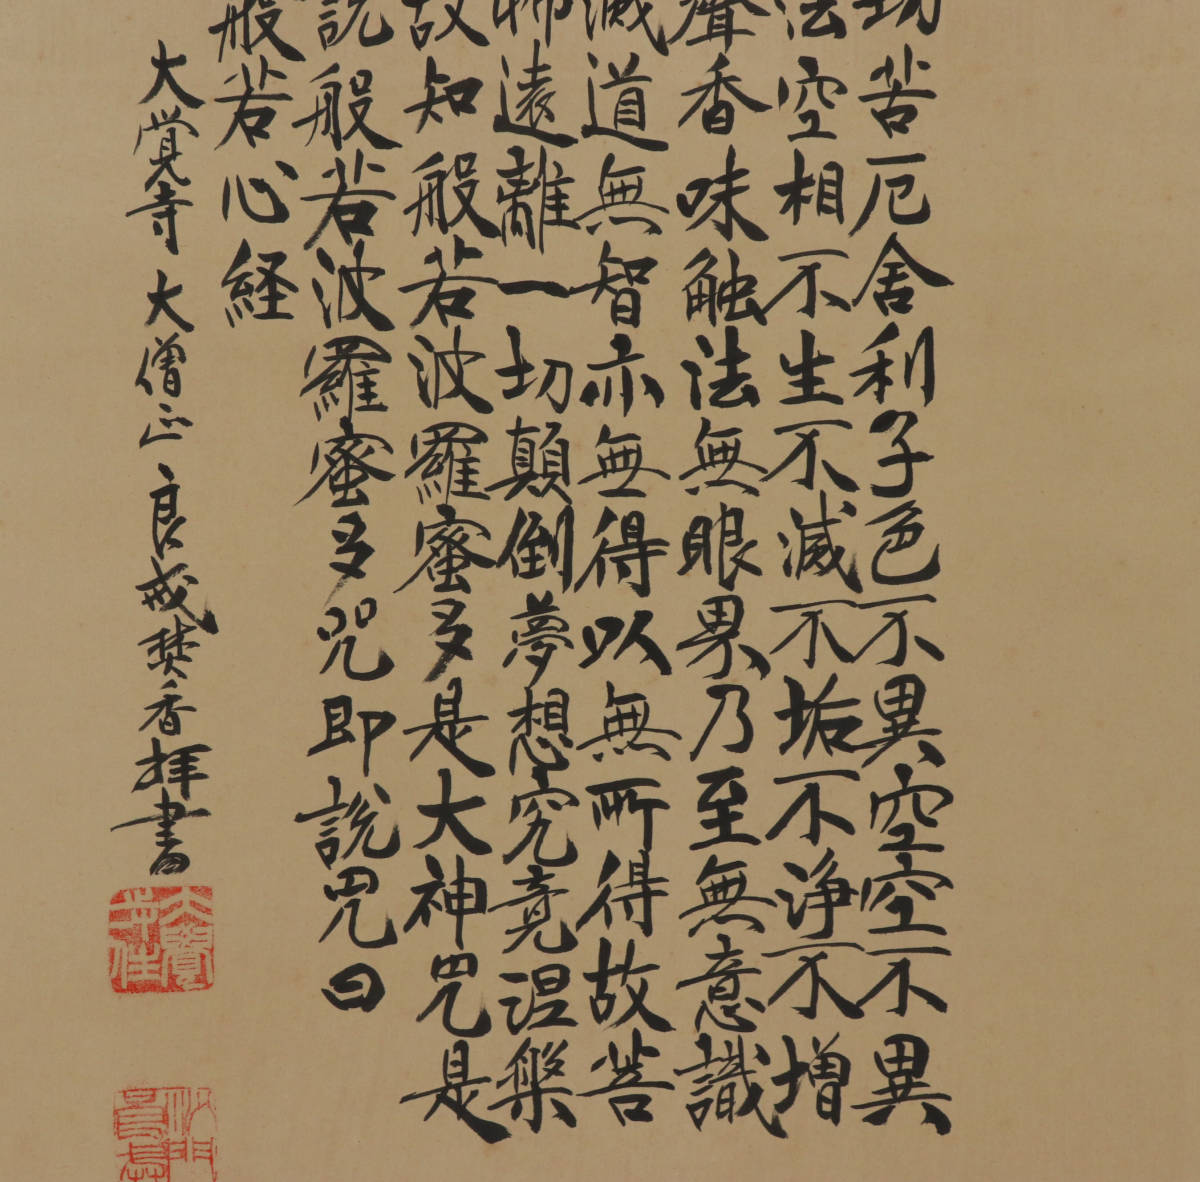 切苦厄舍利子色不異空空不異
法空相不生不滅不垢不浄不増
聲香味触法無眼界乃至無意識
滅道無智亦無得以無所得故菩
遠離一切顛倒夢想究竟涅槃
故知般若波羅蜜多是大神咒是
説般若波羅蜜多咒即説咒曰
般若心経
大覚寺大僧正良戒焚香拝書
大覺寺住
沙門